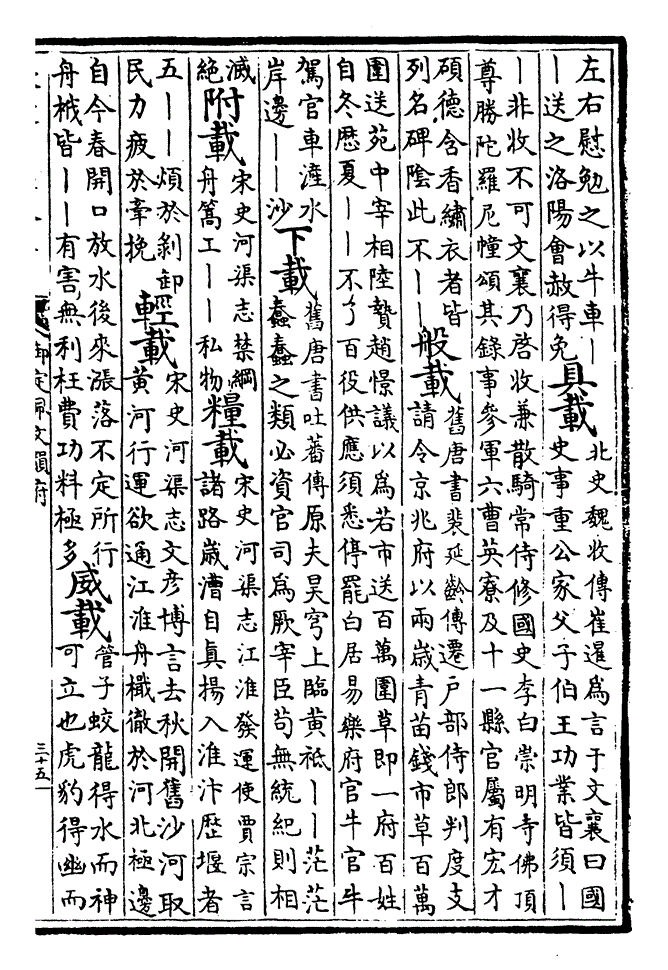 左右慰勉之以牛車丨
丨送之洛陽會赦得免
具載
北史魏收傳崔暹為言于文襄曰國
史事重公家父子伯王功業皆須丨
丨非收不可文襄乃啓收兼散騎常侍修國史李白崇明寺佛頂
尊勝陀羅尼幢頌其錄事參軍六曹英寮及十一縣官屬有宏才
碩德含香繡衣者皆
列名碑陰此不丨丨
般載
舊唐書裴延齡傳遷戸部侍郎判度支
請令京兆府以兩歲青苗錢市草百萬
圍送苑中宰相陸贄趙憬議以為若市送百萬圍草即一府百姓
自冬歷夏丨丨不了百役供應須悉停罷白居易樂府官牛官牛
駕官車滻水
岸邊丨丨沙
下載
舊唐書吐蕃傳原夫昊穹上臨黃祗丨丨茫茫
蠢蠢之類必資官司為厥宰臣苟無統紀則相
滅
絶
附載
宋史河渠志禁綱
舟篙工丨丨私物
糧載
宋史河渠志江淮發運使賈宗言
諸路歲漕自真揚入淮汴歷堰者
五丨丨煩於剝卸
民力疲於牽挽
輕載
宋史河渠志文彥博言去秋開舊沙河取
黃河行運欲通江淮舟檝徹於河北極邊
自今春開口放水後來漲落不定所行
舟栰皆丨丨有害無利枉費功料極多
威載
管子蛟龍得水而神
可立也虎豹得幽而
御定佩文韻府
三十五